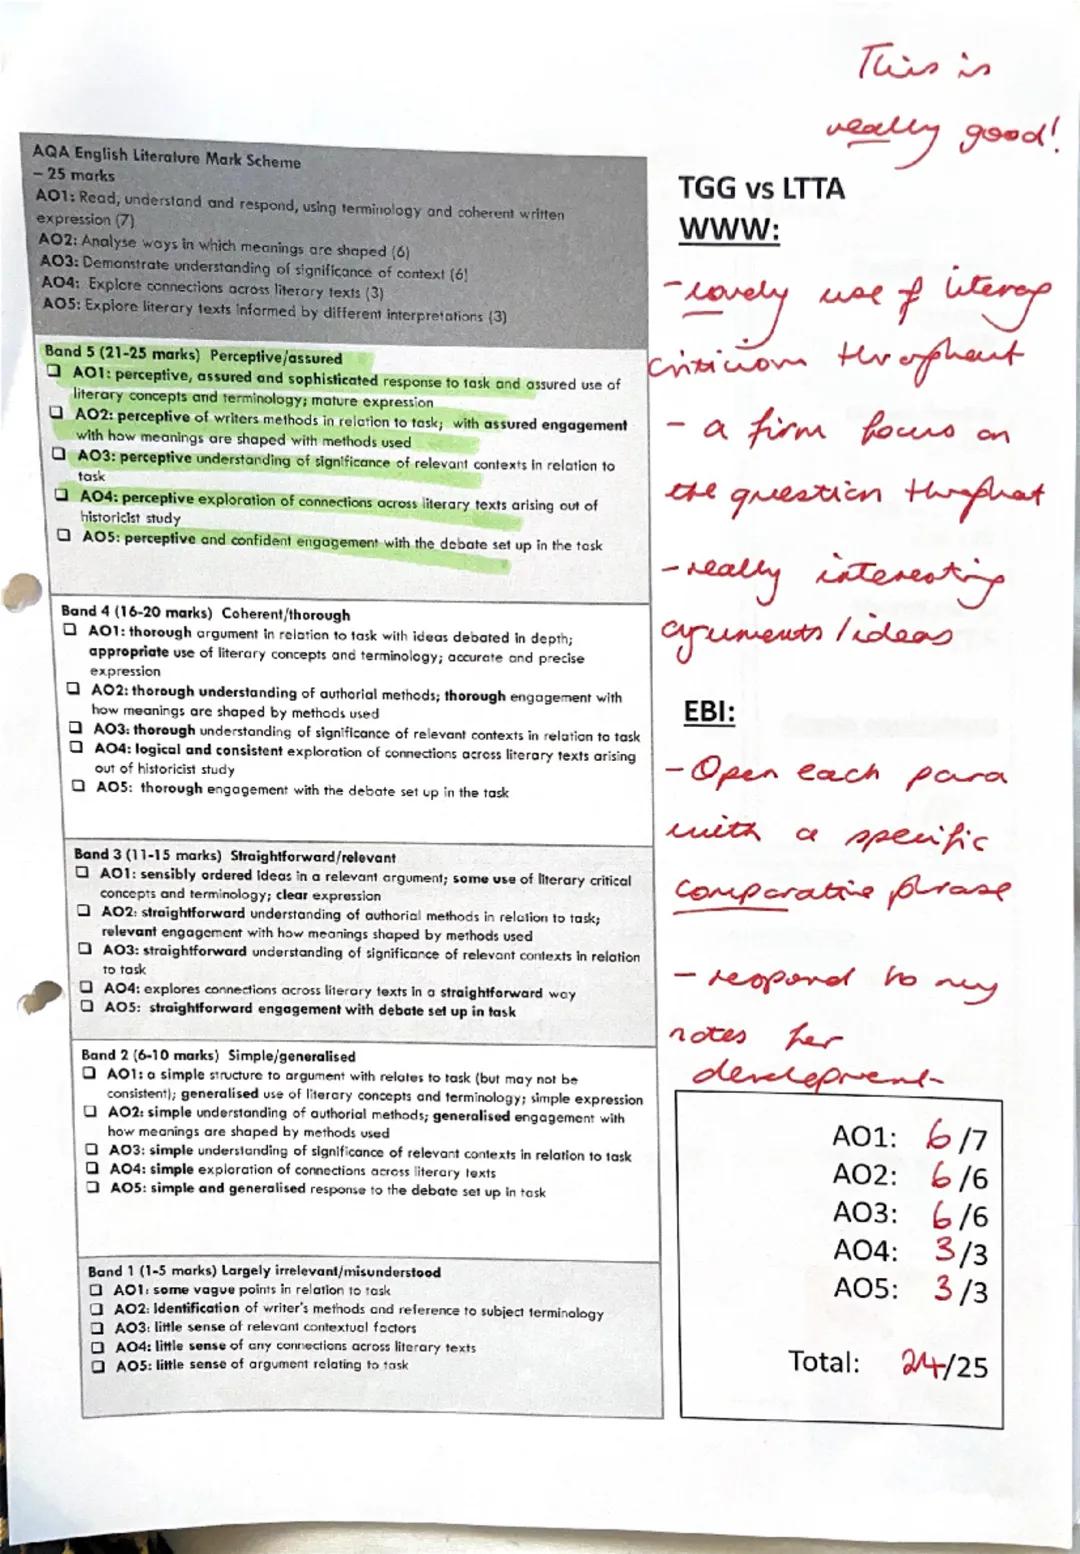 This is
really good!
AQA English Literature Mark Scheme
– 25 marks
AO1: Read, understand and respond, using terminology and coherent written
expression (7)
AO2: Analyse ways in which meanings are shaped (6)
AO3: Demonstrate understanding of significance of context (6)
AO4: Explore connections across literary texts (3)
AO5: Explore literary texts informed by different interpretations (3)
Band 5 (21-25 marks) Perceptive/assured
❑ AO1: perceptive, assured and sophisticated response to task and assured use of
literary concepts and terminology; mature expression
❑ AO2: perceptive of writers methods in relation to task; with assured engagement
with how meanings are shaped with methods used
❑ AO3: perceptive understanding of significance of relevant contexts in relation to
task
❑ AO4: perceptive exploration of connections across literary texts arising out of
historicist study
❑ AO5: perceptive and confident engagement with the debate set up in the task
Band 4 (16-20 marks) Coherent/thorough
❑ AO1: thorough argument in relation to task with ideas debated in depth;
appropriate use of literary concepts and terminology; accurate and precise
expression
❑ AO2: thorough understanding of authorial methods; thorough engagement with
how meanings are shaped by methods used
❑ AO3: thorough understanding of significance of relevant contexts in relation to task
❑ AO4: logical and consistent exploration of connections across literary texts arising
out of historicist study
❑ AO5: thorough engagement with the debate set up in the task
Band 3 (11-15 marks) Straightforward/relevant
❑ AO1: sensibly ordered ideas in a relevant argument; some use of literary critical
concepts and terminology; clear expression
❑ AO2: straightforward understanding of authorial methods in relation to task;
relevant engagement with how meanings shaped by methods used
❑ AO3: straightforward understanding of significance of relevant contexts in relation
to task
❑ AO4: explores connections across literary texts in a straightforward way
❑ AO5: straightforward engagement with debate set up in task
Band 2 (6-10 marks) Simple/generalised
❑ AO1: a simple structure to argument with relates to task (but may not be
consistent); generalised use of literary concepts and terminology; simple expression
❑ AO2: simple understanding of authorial methods; generalised engagement with
how meanings are shaped by methods used
❑ AO3: simple understanding of significance of relevant contexts in relation to task
❑ AO4: simple exploration of connections across literary texts
❑ AO5: simple and generalised response to the debate set up in task
Band 1 (1-5 marks) Largely irrelevant/misunderstood
❑ AO1: some vague points in relation to task
❑ AO2: Identification of writer's methods and reference to subject terminology
❑ AO3: little sense of relevant contextual factors
❑ AO4: little sense of any connections across literary texts
❑ AO5: little sense of argument relating to task
TGG vs LTTA
WWW:
- lovely use of literary
criticism throughout
- a firm focus on
the question throughout
- really interesting
arguments / ideas
EBI:
- Open each para
with a specific
comparative phrase
- respond to my
notes for
development
AO1: 6/7
AO2: 6/6
AO3: 6/6
AO4: 3/3
AO5: 3/3
Total: 24/25